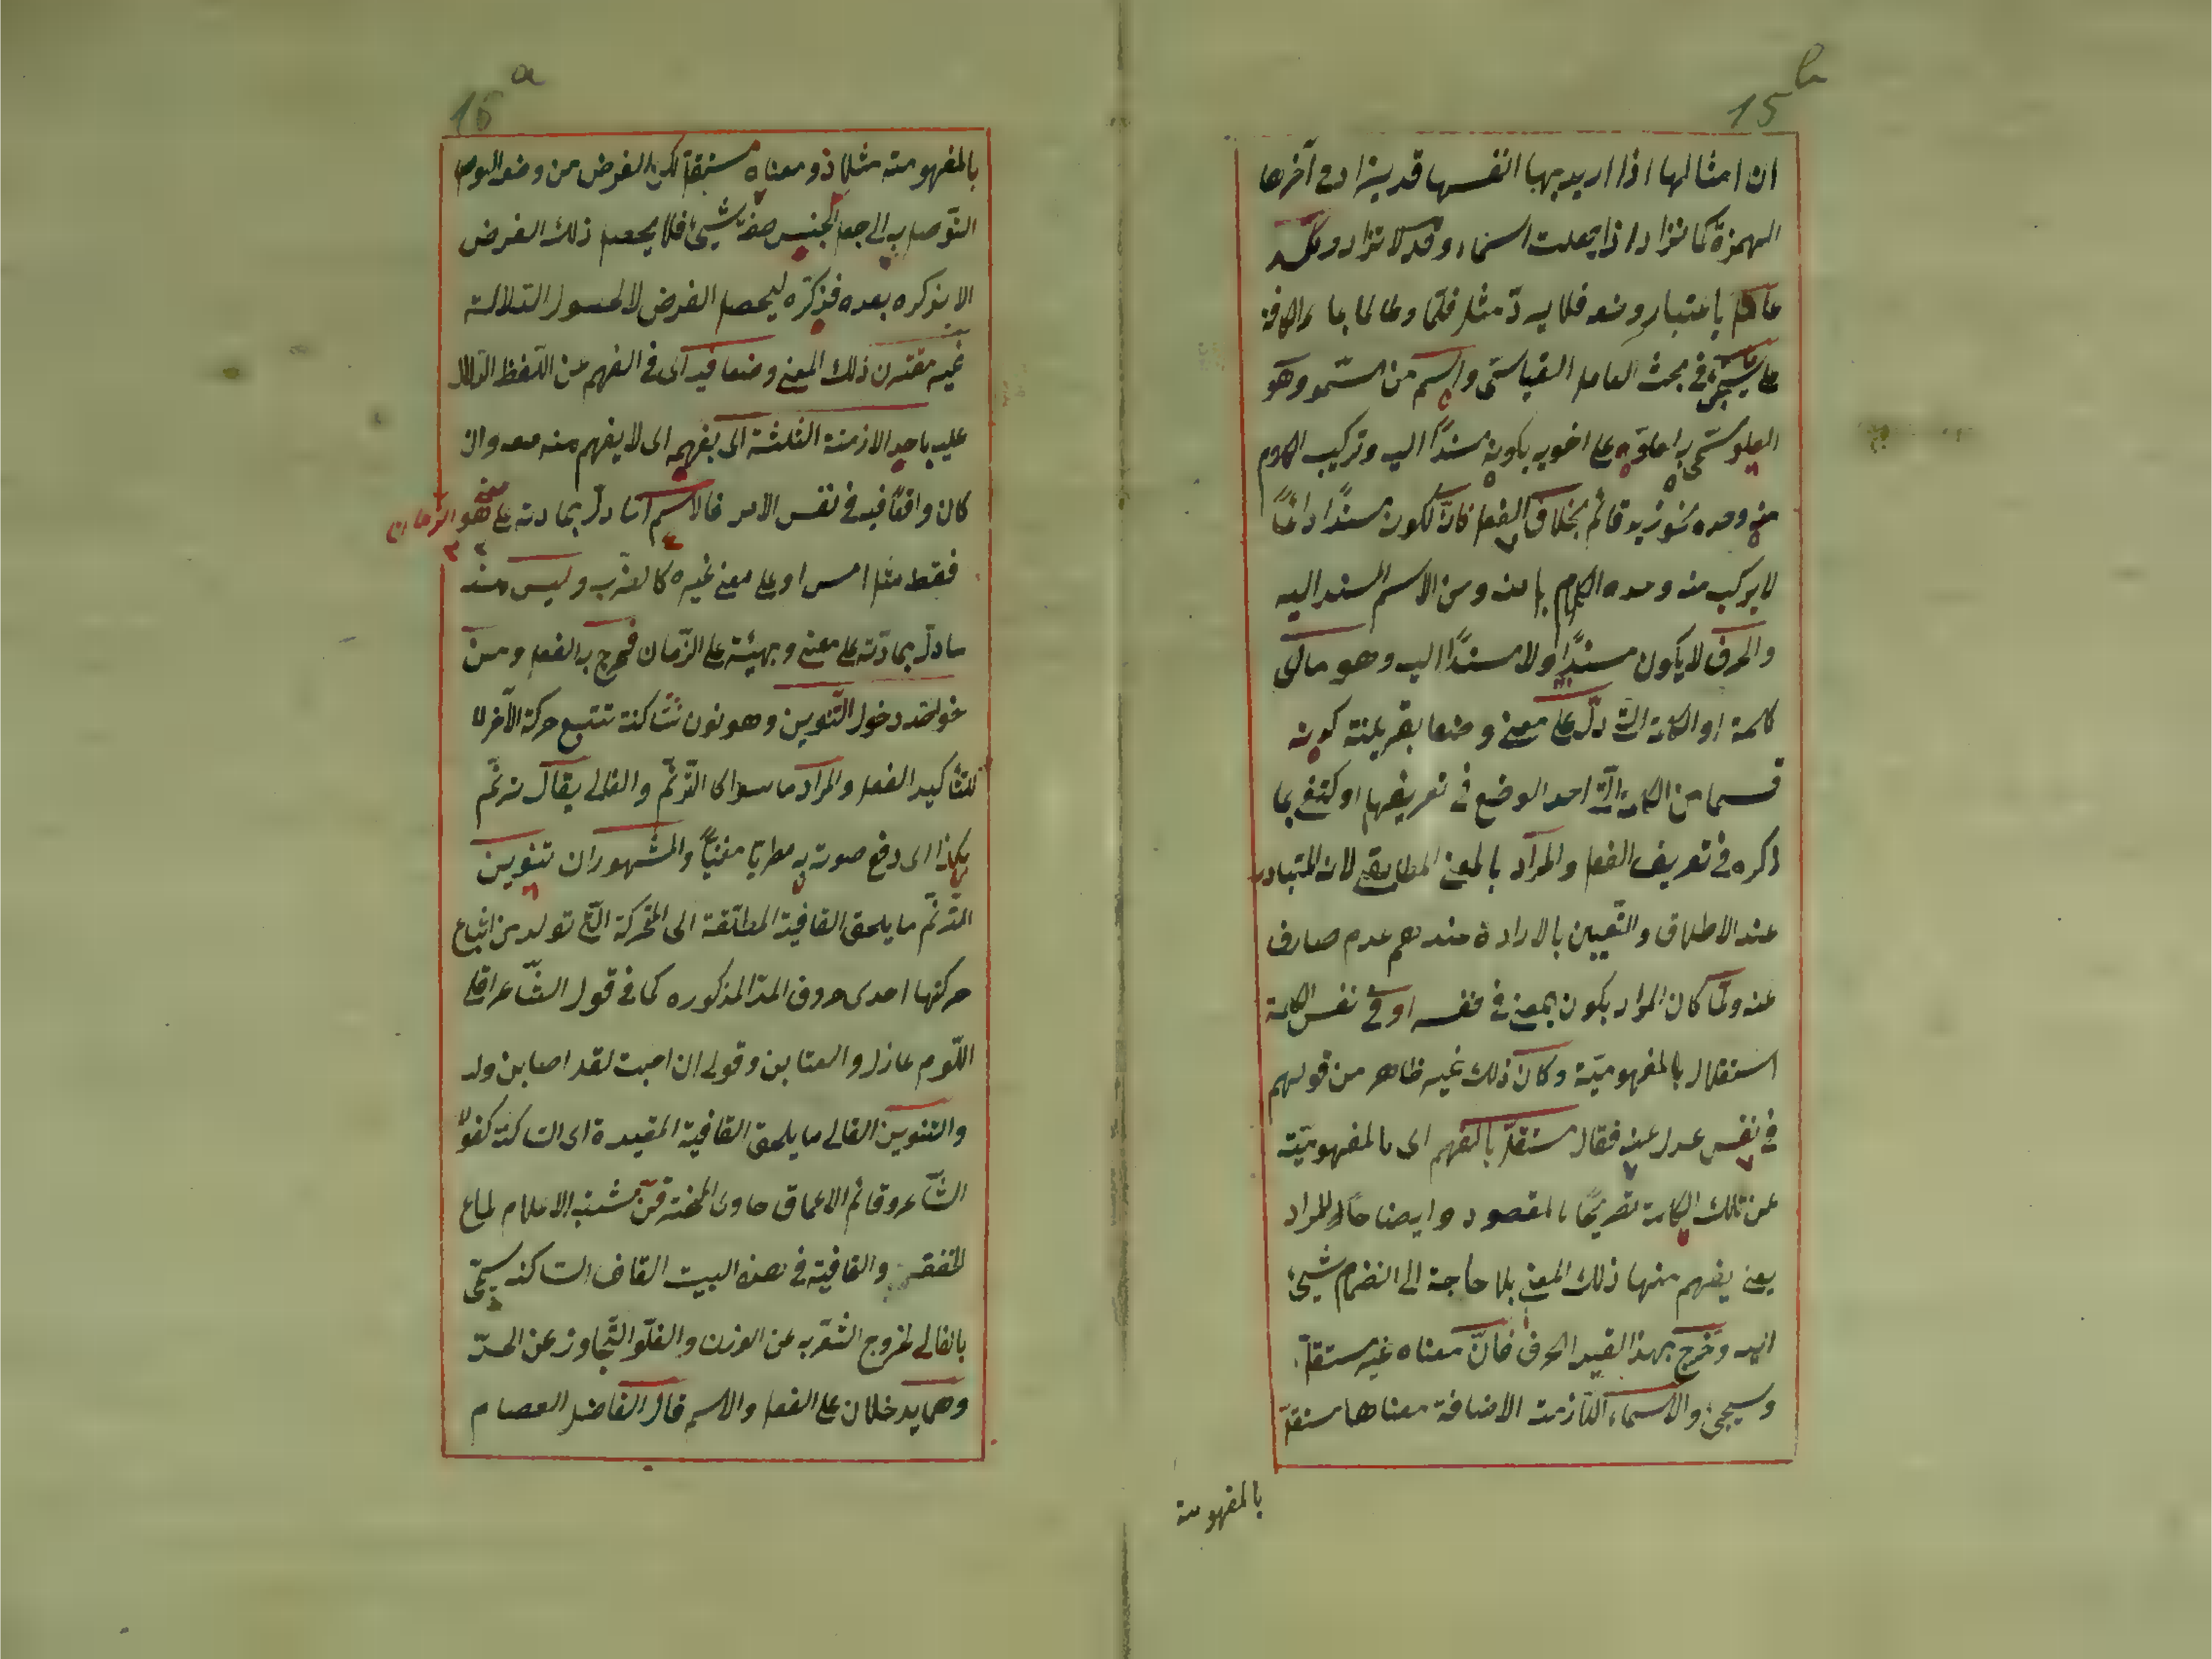 15b
ان امثالها اذا اريد بها انفسها قد يزاد فى آخرها
الهمزة كما تزاد اذا جعلت اسماء وقد لا تزاد وكلّ
عامل باعتبار وضعه فلا يردّ مثل قلّما وطالما بما الكافة
على ما سيجئ فى بحث العامل القياسى واسم من السّمو وهو
العلو سمّى به لعلوّه على اخويه بكونه مسندًا اليه وتركيب الكلام
منه وحده نحو زيد قائم بخلاف الفعل فانّه لكونه مسندًا دائمًا
لا يركب منه وحده الكلام بل منه ومن الاسم المسند اليه
والحرف لا يكون مسندًا ولا مسندًا اليه وهو ما اى
كلمة او الكلمة التى دلّ على معنى وضعا بقرينة كونه
قسما من الكلمة التى اخذ الوضع فى تعريفها او كتفى بما
ذكره فى تعريف الفعل والمراد بالمعنى المطابقى لانه المتبادر
عند الاطلاق والتعيين بالارادة عندهم عدم صارف
عنه ولمّا كان المراد بكون المعنى فى نفسه او فى نفس الكلمة
استقلال بالمفهوميّة وكان ذلك غير ظاهر من قولهم
فى نفس عدل عنه فقال مستقلّ بالفهم اى بالمفهوميّة
عن تلك الكلمة تصريحًا بالمقصود وايضاحًا للمراد
يعنى يفهم منها ذلك المعنى بلا حاجة الى انضمام شيئ
اليه وخرج بهذا القيد الحرف فانّ معناه غير مستقلّ
وسيجئ والاسماء اللّازمة الاضافة معناها مستقلّ
بالمفهومية
16a
بالمفهومية مثلا ذو معناه مستقلّ لكن الغرض من وضعه
التوصل به الى جعل الجنس صفة شيئ فلا يحصل ذلك الغرض
الا بذكره بعده فذكره ليحصل الغرض لا لحصول الدلالة
غير مقترن ذلك المعنى وضعا فيه اى فى الفهم عن اللّفظ الدّال
عليه باحد الازمنة الثلثة اى بفهمه اى لا يفهم منه معه وان
كان واقعًا فيه فى نفس الامر فالاسم امّا دلّ بمادته على معنى هو الزّمان
فقط مثل امس او على معنى غيره كالضّرب وليس منه
ما دلّ بمادّته على معنى وبهيئته على الزّمان فخرج به الفعل ومن
خواصّه دخول التّنوين وهو نون ساكنة تتبع حركة الآخر لا
للتأكيد الفعل والمراد ما سوا الترنّم والغالى يقال ترنّم
بكذا اى رفع صوته به مطربا مغنيّاً والمشهور ان تنوين
الترنّم ما يلحق القافية المطلقة اى المحرّكة التى تولد من اشباع
حركتها احدى حروف المدّ المذكوره كما فى قول الشّاعر اقلى
اللّوم عاذل والعتابن وقولى ان اصبت لقد اصابن ولد
والتنوين الغالى ما يلحق القافية المقيدة اى الساكنة كقول
الشّاعر وقاتم الاعماق خاوى المخترقن مشتبه الاعلام لماع
الخفقن والقافية فى هذه البيت القاف الساكنة سمّى
بالغالى لخروج الشعر به عن الوزن والغلّو التّجاوز عن الحدّ
وهما يدخلان على الفعل والاسم قال الفاضل العصام